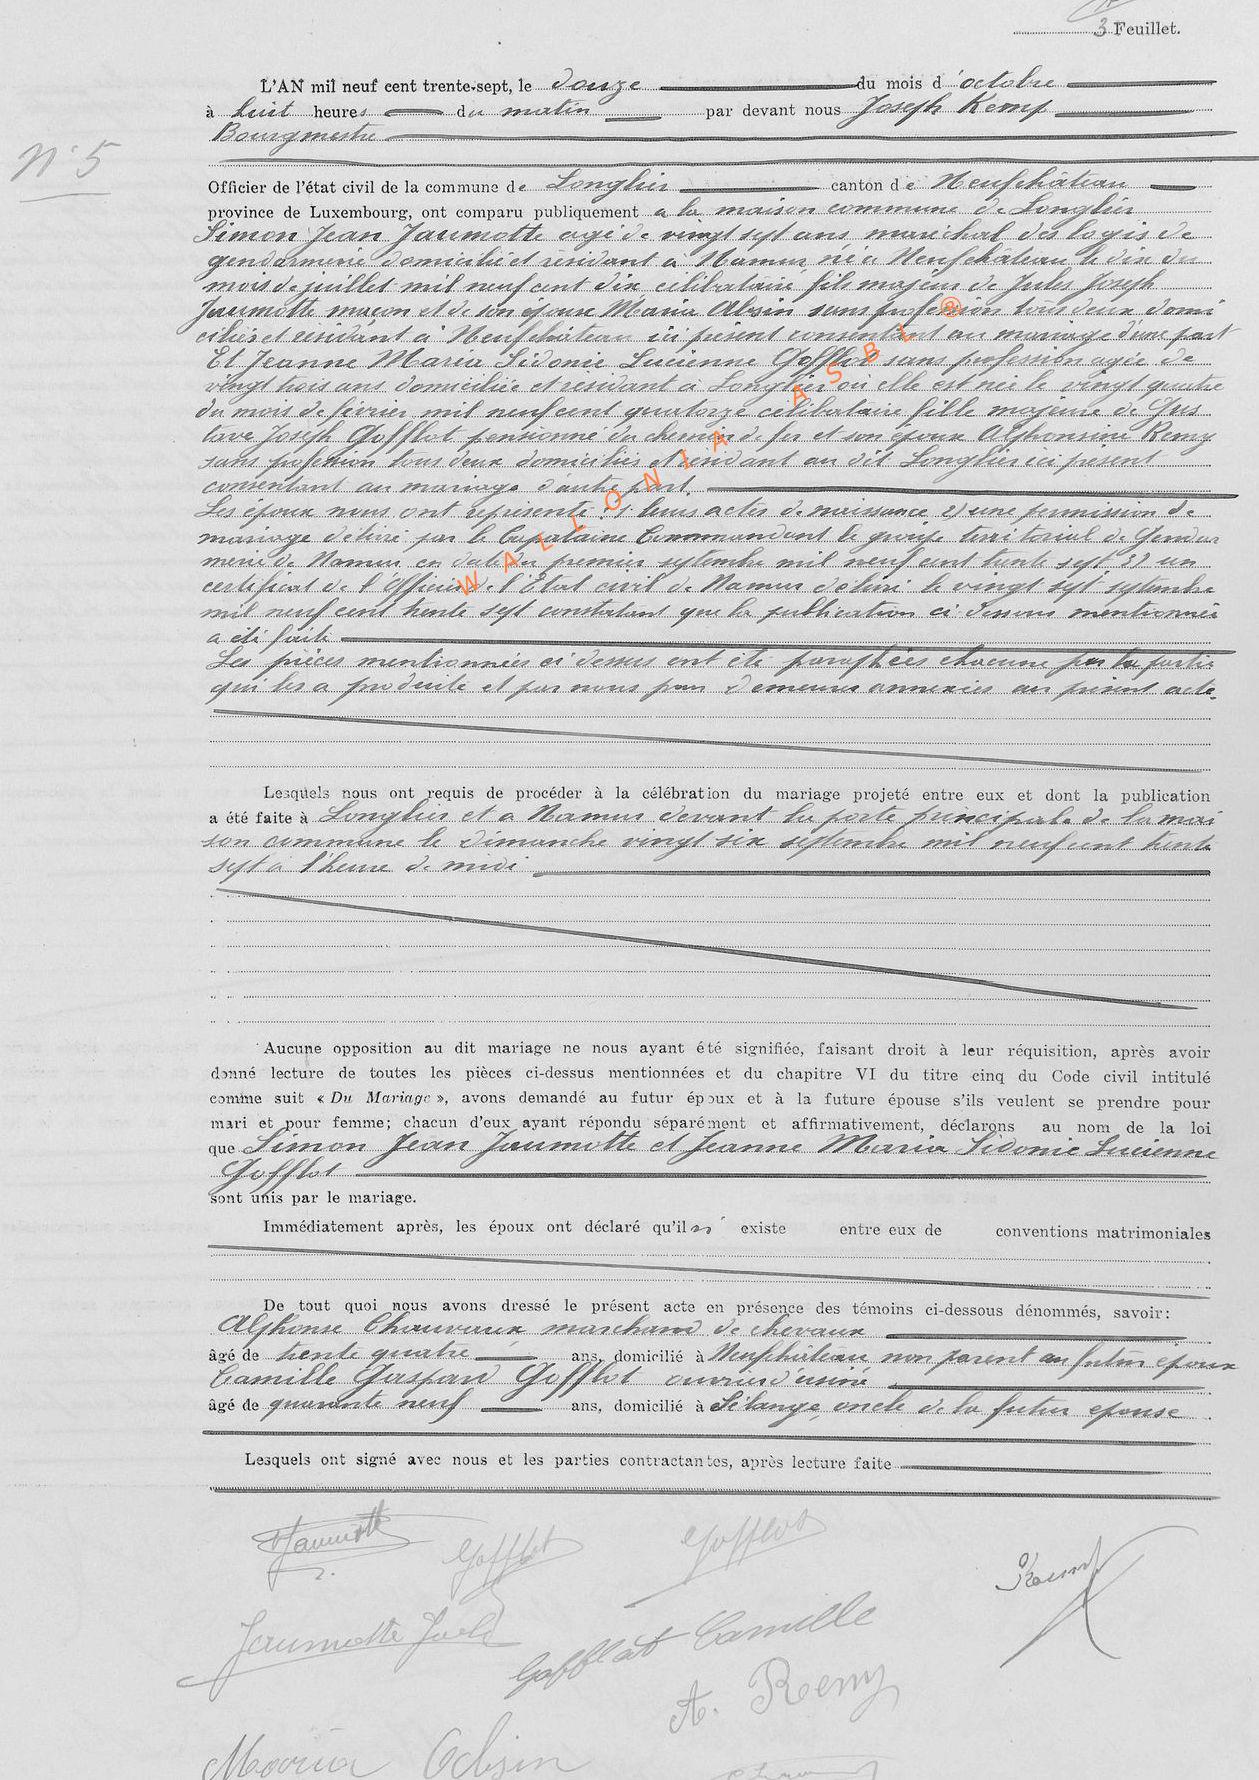 3 Feuillet.
L'AN mil neuf cent trente-sept, le douze du mois d'octobre
à huit heures du matin par devant nous Joseph Kemp
Bourgmestre
N° 5
Officier de l'état civil de la commune de Longlier canton de Neufchâteau
province de Luxembourg, ont comparu publiquement a la maison commune de Longlier
Simon Jean Jaumotte agé de vingt sept ans maréchal des logis de
gendarmerie domicilié et résidant à Namur né à Neufchâteau le dix du
mois de juillet mil neuf cent dix célibataire fils majeur de Jules Joseph
Jaumotte maçon et de son épouse Maria sans profession tous deux domi
ciliés et résidant à Neufchâteau ici présent consentant au mariage d'une part
Et Jeanne Maria Sidonie Lucienne Gofflot sans profession agée de
vingt trois ans domiciliée et résidant à Longlier où elle est née le vingt quatre
du mois de février mil neuf cent quatorze célibataire fille majeure de Gus
tave Joseph Gofflot pensionné du chemin de fer et son épouse Alphonsine Remy
sans profession tous deux domiciliés et résidant au dit Longlier ici présent
consentant au mariage d'autre part.
Les époux nous ont représenté : 1) leurs actes de naissance 2) une permission de
mariage délivré par le Capitaine Commandant le groupe territorial de Gendar
merie de Namur en date du premier septembre mil neuf cent trente sept 3) un
certificat de l'Officier de l'Etat civil de Namur délivré le vingt sept septembre
mil neuf cent trente sept constatant que la publication ci dessous mentionnée
a été faite
Les pièces mentionnées ci dessus ont été paraphées chacune par la partie
qui les a produite et par nous pour demeurer annexées au présent acte.
WALLONIA ASBL ®
Lesquels nous ont requis de procéder à la célébration du mariage projeté entre eux et dont la publication
a été faite à Longlier et a Namur devant la porte principale de la mai
son commune le dimanche vingt six septembre mil neuf cent trente
sept à l'heure de midi
Aucune opposition au dit mariage ne nous ayant été signifiée, faisant droit à leur réquisition, après avoir
donné lecture de toutes les pièces ci-dessus mentionnées et du chapitre VI du titre cinq du Code civil intitulé
comme suit « Du Mariage », avons demandé au futur époux et à la future épouse s'ils veulent se prendre pour
mari et pour femme; chacun d'eux ayant répondu séparément et affirmativement, déclarons au nom de la loi
que Simon Jean Jaumotte et Jeanne Maria Sidonie Lucienne
Gofflot
sont unis par le mariage.
Immédiatement après, les époux ont déclaré qu'il n' existe entre eux de conventions matrimoniales
De tout quoi nous avons dressé le présent acte en présence des témoins ci-dessous dénommés, savoir :
Alphonse Chauvaux marchand de chevaux
âgé de trente quatre ans, domicilié à Neufchâteau non parent au futur époux
Camille Gaspard Gofflot ouvrier d'usine
âgé de quarante neuf ans, domicilié à Sélange, oncle de la futur épouse
Lesquels ont signé avec nous et les parties contractantes, après lecture faite
Jaumotte Gofflot Gofflot Kemp
Jaumotte Gofflot Camille
A. Remy
Maria